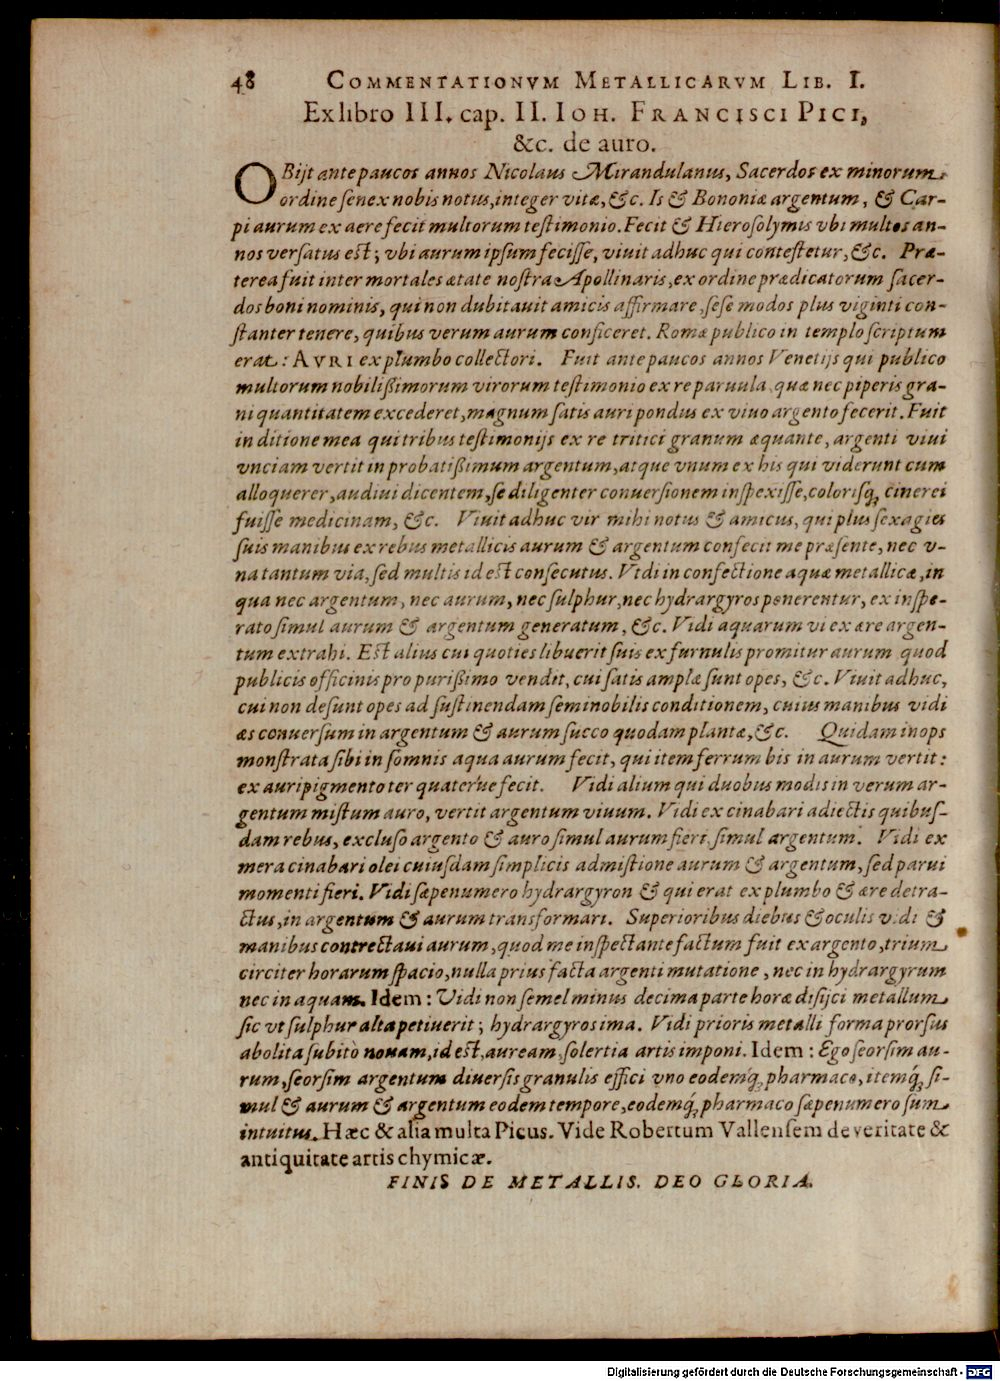 48 COMMENTATIONVM METALLICARVM LIB. I.
Ex libro III. cap. II. IOH. FRANCISCI PICI,
&c. de auro.
OBijt ante paucos annos Nicolaus Mirandulanus, Sacerdos ex minorum
ordine senex nobis notus, integer vitæ, &c. Is & Bononiæ argentum, & Car-
pi aurum ex aere fecit multorum testimonio. Fecit & Hierosolymis vbi multos an-
nos versatus est; vbi aurum ipsum fecisse, viuit adhuc qui contestetur, &c. Præ-
terea fuit inter mortales ætate nostra Apollinaris, ex ordine prædicatorum sacer-
dos boni nominis, qui non dubitauit amicis affirmare, sese modos plus viginti con-
stanter tenere, quibus verum aurum conficeret. Romæ publico in templo scriptum
erat: AVRI ex plumbo collectori. Fuit ante paucos annos Venetijs qui publico
multorum nobilißimorum virorum testimonio ex re paruula, quæ nec piperis gra-
ni quantitatem excederet, magnum satis auri pondus ex viuo argento fecerit. Fuit
in ditione mea qui tribus testimonijs ex re tritici granum æquante, argenti viui
vnciam vertit in probatißimum argentum, atque vnum ex his qui viderunt cum
alloquerer, audiui dicentem, se diligenter conuersionem inspexisse, colorisq́; cinerei
fuisse medicinam, &c. Viuit adhuc vir mihi notus & amicus, qui plus sexagies
suis manibus ex rebus metallicis aurum & argentum confecit me præsente, nec v-
na tantum via, sed multis id est consecutus. Vidi in confectione aquæ metallicæ, in
qua nec argentum, nec aurum, nec sulphur, nec hydrargyros ponerentur, ex inspe-
rato simul aurum & argentum generatum, &c. Vidi aquarum vi ex ære argen-
tum extrahi. Est alius cui quoties libuerit suis ex furnulis promitur aurum quod
publicis officinis pro purißimo vendit, cui satis amplæ sunt opes, &c. Viuit adhuc,
cui non desunt opes ad sustinendam seminobilis conditionem, cuius manibus vidi
æs conuersum in argentum & aurum succo quodam plantæ, &c. Quidam inops
monstrata sibi in somnis aqua aurum fecit, qui item ferrum bis in aurum vertit:
ex auripigmento ter quaterue fecit. Vidi alium qui duobus modis in verum ar-
gentum mistum auro, vertit argentum viuum. Vidi ex cinabari adiectis quibus-
dam rebus, excluso argento & auro simul aurum fieri, simul argentum. Vidi ex
mera cinabari olei cuiusdam simplicis admistione aurum & argentum, sed parui
momenti fieri. Vidi sæpenumero hydrargyron & qui erat ex plumbo & ære detra-
ctus, in argentum & aurum transformari. Superioribus diebus & oculis vidi &
manibus contrectaui aurum, quod me inspectante factum fuit ex argento, trium
circiter horarum spacio, nulla prius facta argenti mutatione, nec in hydrargyrum
nec in aquam. Idem: Vidi non semel minus decima parte horæ disijci metallum
sic vt sulphur alta petiuerit; hydrargyros ima. Vidi prioris metalli forma prorsus
abolita subitò nouam, id est, auream, solertia artis imponi. Idem: Ego seorsim au-
rum, seorsim argentum diuersis granulis effici vno eodemq́; pharmaco, itemq́; si-
mul & aurum & argentum eodem tempore, eodemq́; pharmaco sæpenumero sum
intuitus. Hæc & alia multa Picus. Vide Robertum Vallensem de veritate &
antiquitate artis chymicæ.
FINIS DE METALLIS. DEO GLORIA.
Digitalisierung gefördert durch die Deutsche Forschungsgemeinschaft - DFG